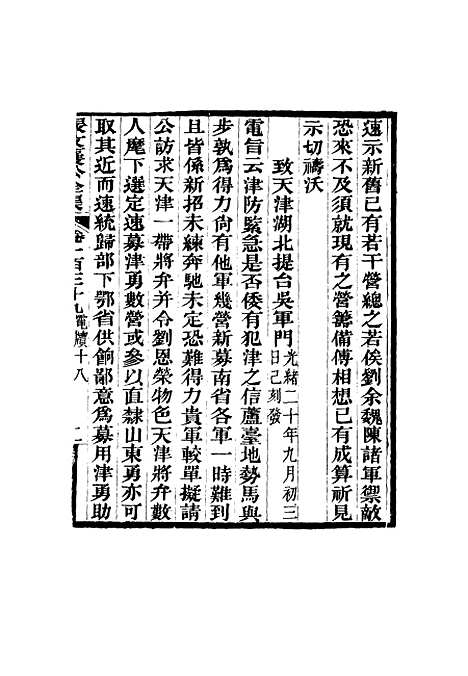 速示新舊已有若干營總之若俟劉余魏陳諸軍禦敵
恐來不及須就現有之營籌備傅相想已有成算祈見
示切禱沃
致天津湖北提台吳軍門光緒二十年九月初三日己刻發
電旨云津防緊急是否倭有犯津之信蘆臺地勢馬與
步孰爲得力尙有他軍幾營新募南省各軍一時難到
且皆係新招未練奔馳未定恐難得力貴軍較單擬請
公訪求天津一帶將弁并令劉恩榮物色天津將弁數
人麾下選定速募津勇數營或參以直隸山東勇亦可
取其近而速統歸部下鄂省供餉鄙意爲募用津勇助
張文襄公全集 卷一百三十九電牘十八